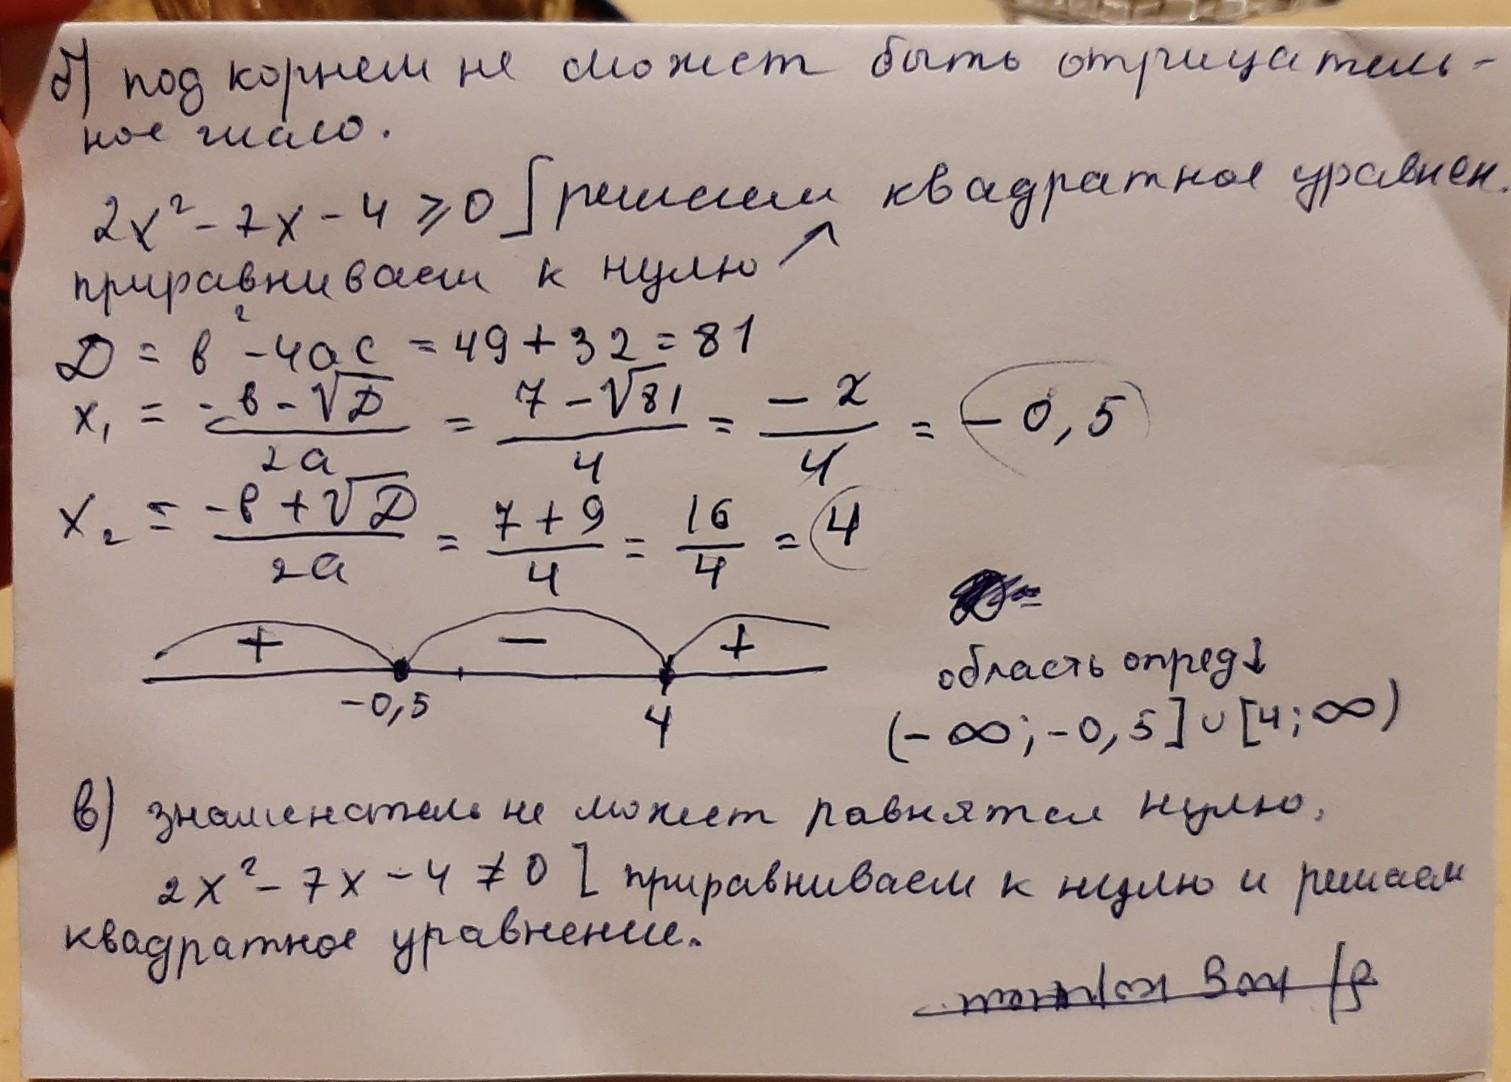 б) под корнем не может быть отрицатель-
ное число.
2x² - 7x - 4 ⩾ 0 ] решаем квадратное уравнен.
приравниваем к нулю ↗
D = b² - 4ac = 49 + 32 = 81
x₁ = (-b - √D)/2a = (7 - √81)/4 = -2/4 = -0,5
x₂ = (-b + √D)/2a = (7 + 9)/4 = 16/4 = 4
+ - +
-0,5 4
область опред ↓
(-∞; -0,5] ∪ [4; ∞)
в) знаменатель не может равнятся нулю.
2x² - 7x - 4 ≠ 0 [ приравниваем к нулю и решаем
квадратное уравнение.
б) под корнем